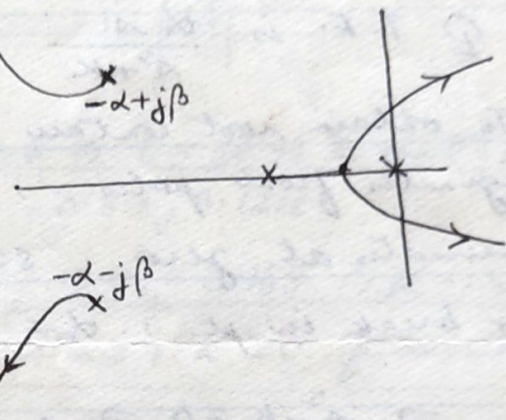 -α+jβ
-α-jβ